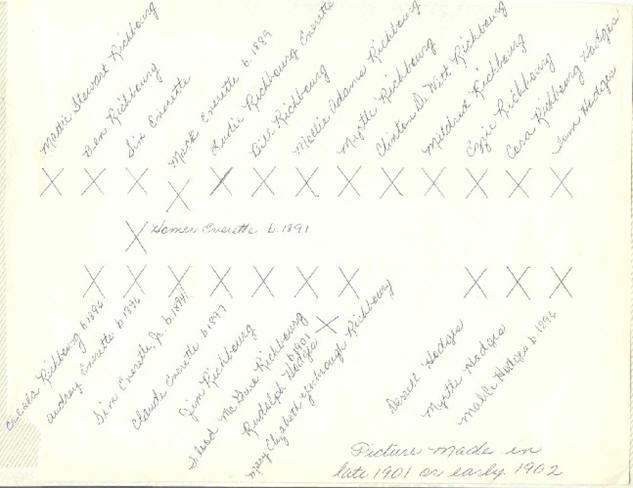 Mattie Stewart Richbourg
Ben Richbourg
Sim Everette
Mack Everette b. 1889
Ludie Richbourg Everette
Bill Richbourg
Mollie Adams Richbourg
Myrtle Richbourg
Clinton De Witt Richbourg
Mildred Richbourg
Ezzie Richbourg
Cora Richbourg Hodges
Sam Hodges
Homer Everette b. 1891
Richbourg b. 1896
Audrey Everette b. 1896
Sim Everette, Jr. b. 1894
Claude Everette b. 1897
Jim Richbourg
McGuire Richbourg
Rudolph Hodges b. 1901
Mary Elizabeth Richbourg
Hodges
Myrtle Hodges
Hodges b. 1896
Picture made in
late 1901 or early 1902